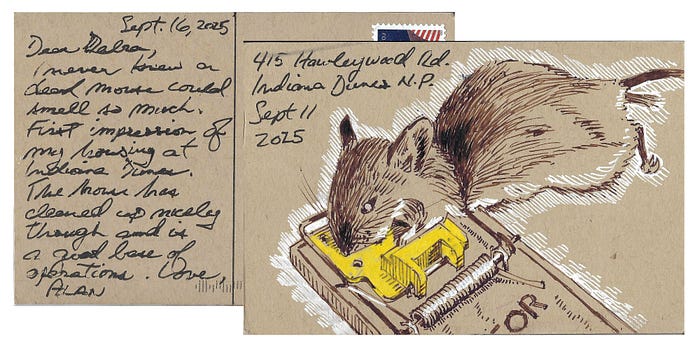 Sept. 16, 2025
Dear Debra,
I never knew a
dead mouse could
smell so much.
First impression of
my housing at
Indiana Dunes.
The house has
cleaned up nicely
though and is
a good base of
operations. Love,
ALAN
415 Hawleywood Rd.
Indiana Dunes N.P.
Sept 11
2025
OR